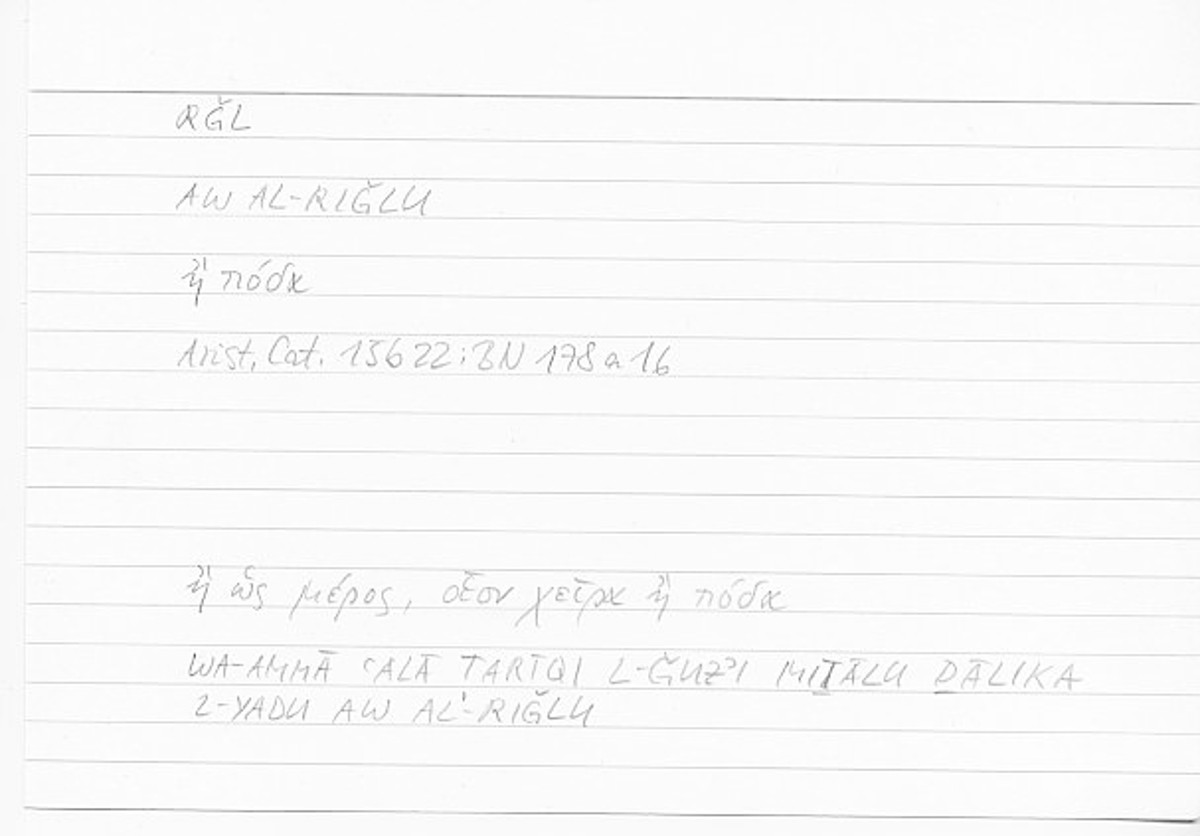 RĞL
AW AL-RIĞLU
ἢ πόδα
Arist., Cat. 15b22; BN 178a16
ἢ ὡς μέρος, οἷον χεῖρα ἢ πόδα
WA-AMMĀ ʿALĀ ṬARĪQI L-ĞUZʾI MIṮĀLU ḎĀLIKA
L-YADU AW AL-RIĞLU